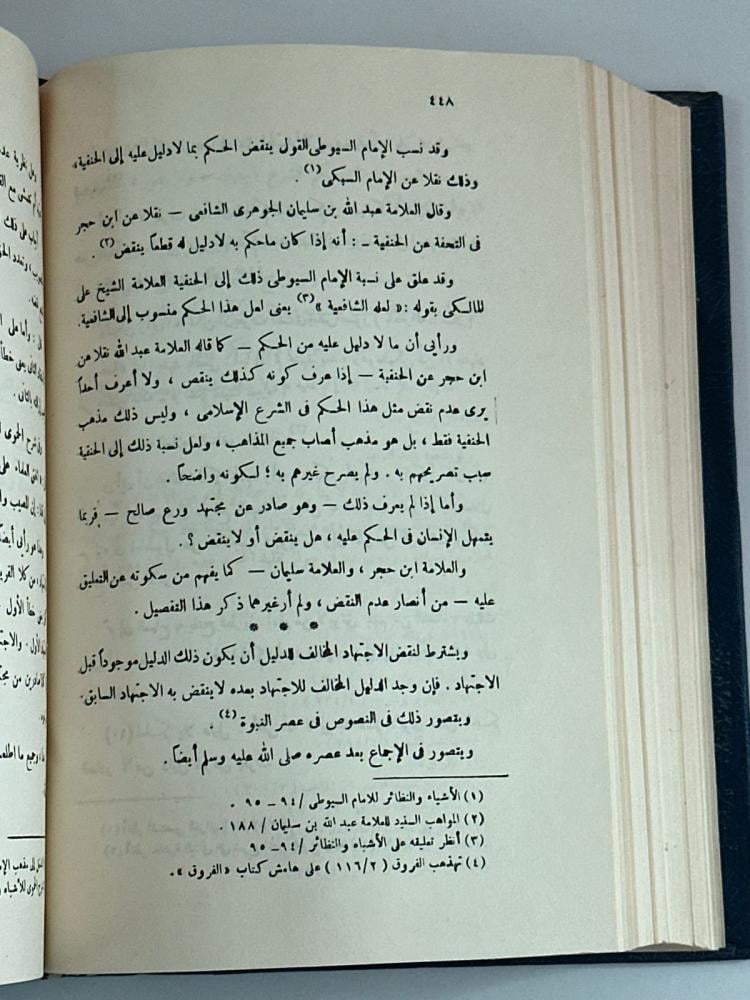 ٤٤٨
وقد نسب الإمام السيوطى القول ينقض الحكم بما لا دليل عليه إلى الحنفية،
وذلك نقلا عن الإمام السبكى (١) .
وقال العلامة عبد الله بن سليمان الجوهرى الشافعى — نقلا عن ابن حجر
فى التحفة عن الحنفية — : أنه إذا كان ماحكم به لا دليل له قطعاً ينقض (٢) .
وقد علق على نسبة الإمام السيوطى ذلك إلى الحنفية العلامة الشيخ على
المالكى بقوله : « لعله الشافعية » (٣) يعنى لعل هذا الحكم منسوب إلى الشافعية.
ورأيى أن ما لا دليل عليه من الحكم — كما قاله العلامة عبد الله نقلا عن
ابن حجر عن الحنفية — إذا عرف كونه كذلك ينقص ، ولا أعرف أحداً
يرى عدم نقض مثل هذا الحكم فى الشرع الإسلامى ، وليس ذلك مذهب
الحنفية فقط ، بل هو مذهب أصاب جميع المذاهب ، ولعل نسبة ذلك إلى الحنفية
سبب تصريحهم به . ولم يصرح غيرهم به ؛ لكونه واضحاً .
وأما إذا لم يعرف ذلك — وهو صادر عن مجتهد ورع صالح — فربما
يتمهل الإنسان فى الحكم عليه ، هل ينقض أو لا ينقض ؟ .
والعلامة ابن حجر ، والعلامة سليمان — كما يفهم من سكوته عن التعليق
عليه — من أنصار عدم النقض ، ولم أر غيرهما ذكر هذا التفصيل .
* * *
ويشترط لنقض الاجتهاد المخالف للدليل أن يكون ذلك الدليل موجوداً قبل
الاجتهاد . فإن وجد الدليل المخالف للاجتهاد بعده لا ينقض به الاجتهاد السابق.
ويتصور ذلك فى النصوص فى عصر النبوة (٤) .
ويتصور فى الإجماع بعد عصره صلى الله عليه وسلم أيضاً .
(١) الأشباه والنظائر للامام السيوطى / ٩٤ — ٩٥ .
(٢) المواهب السنية للعلامة عبد الله بن سليمان / ١٨٨ .
(٣) أنظر تعليقه على الأشباه والنظائر / ٩٤ — ٩٥
(٤) تهذهب الفروق ( ١١٦/٢ ) على هامش كتاب « الفروق » .